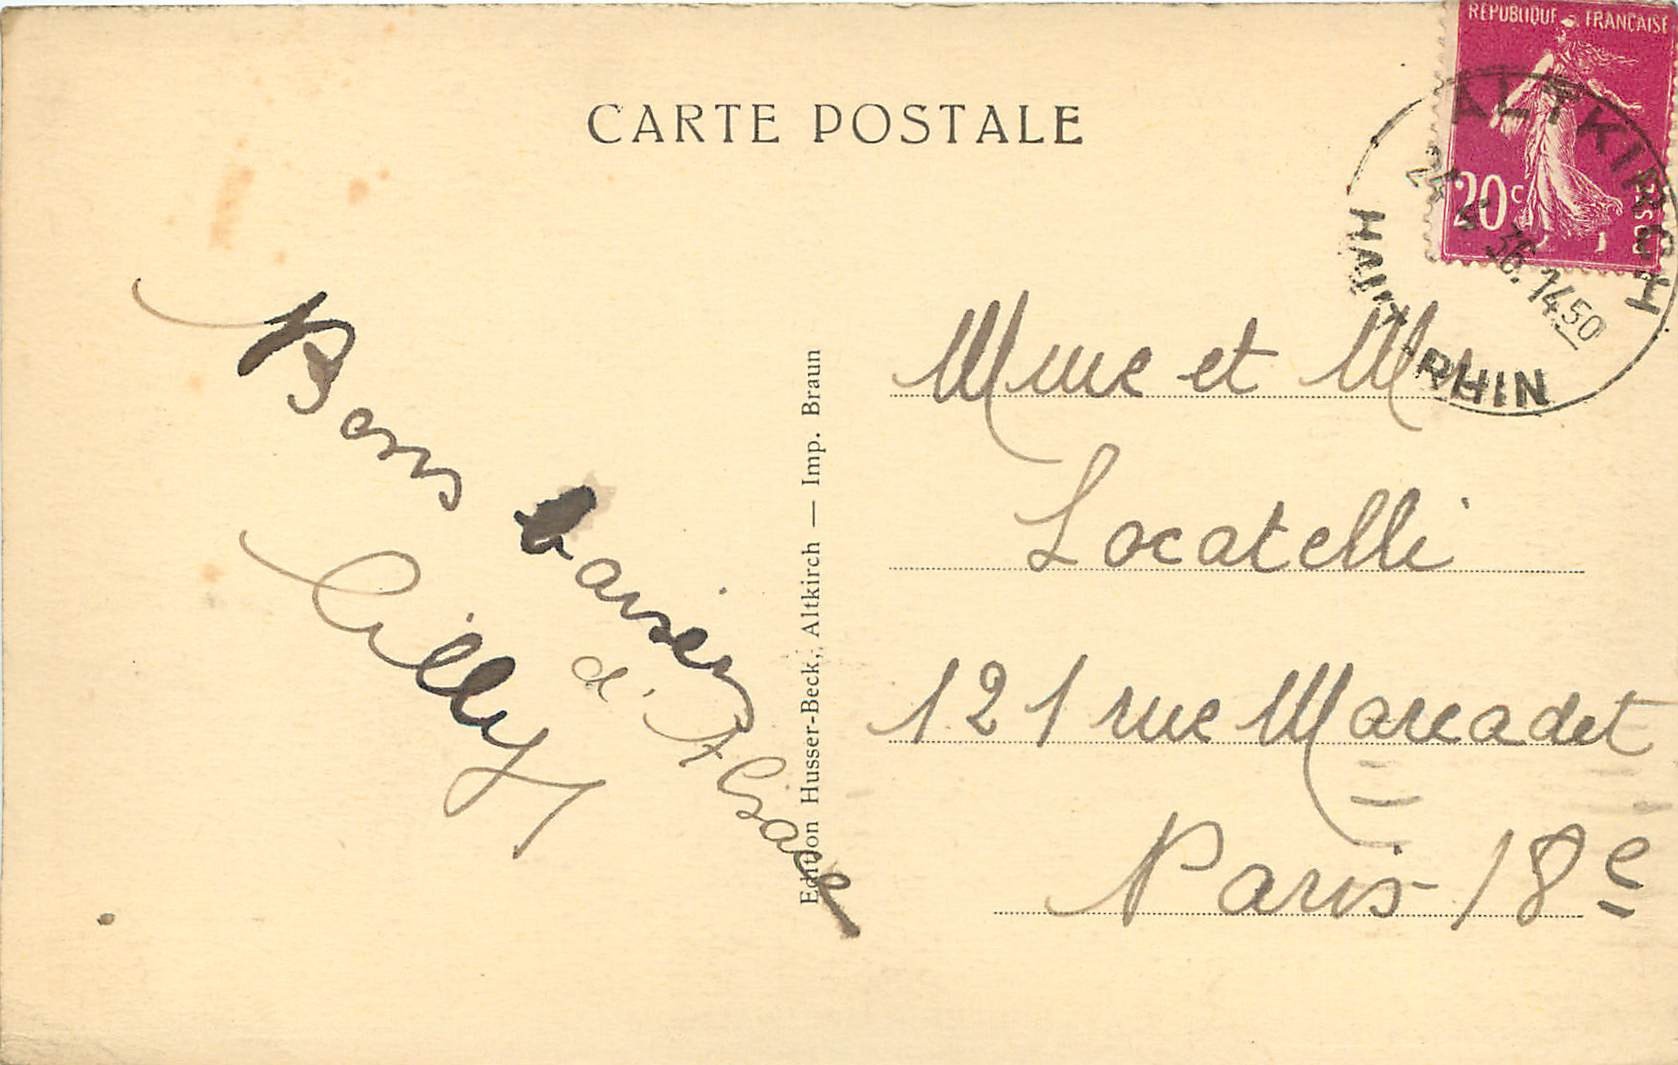 CARTE POSTALE
REPUBLIQUE FRANÇAISE
20c
ALTKIRCH
36. 1450
HAUT-RHIN
Bons baisers
d'Alsace
Lilly
Edition Husser-Beck, Altkirch — Imp. Braun
Mme et Mr
Locatelli
121 rue Marcadet
Paris 18e